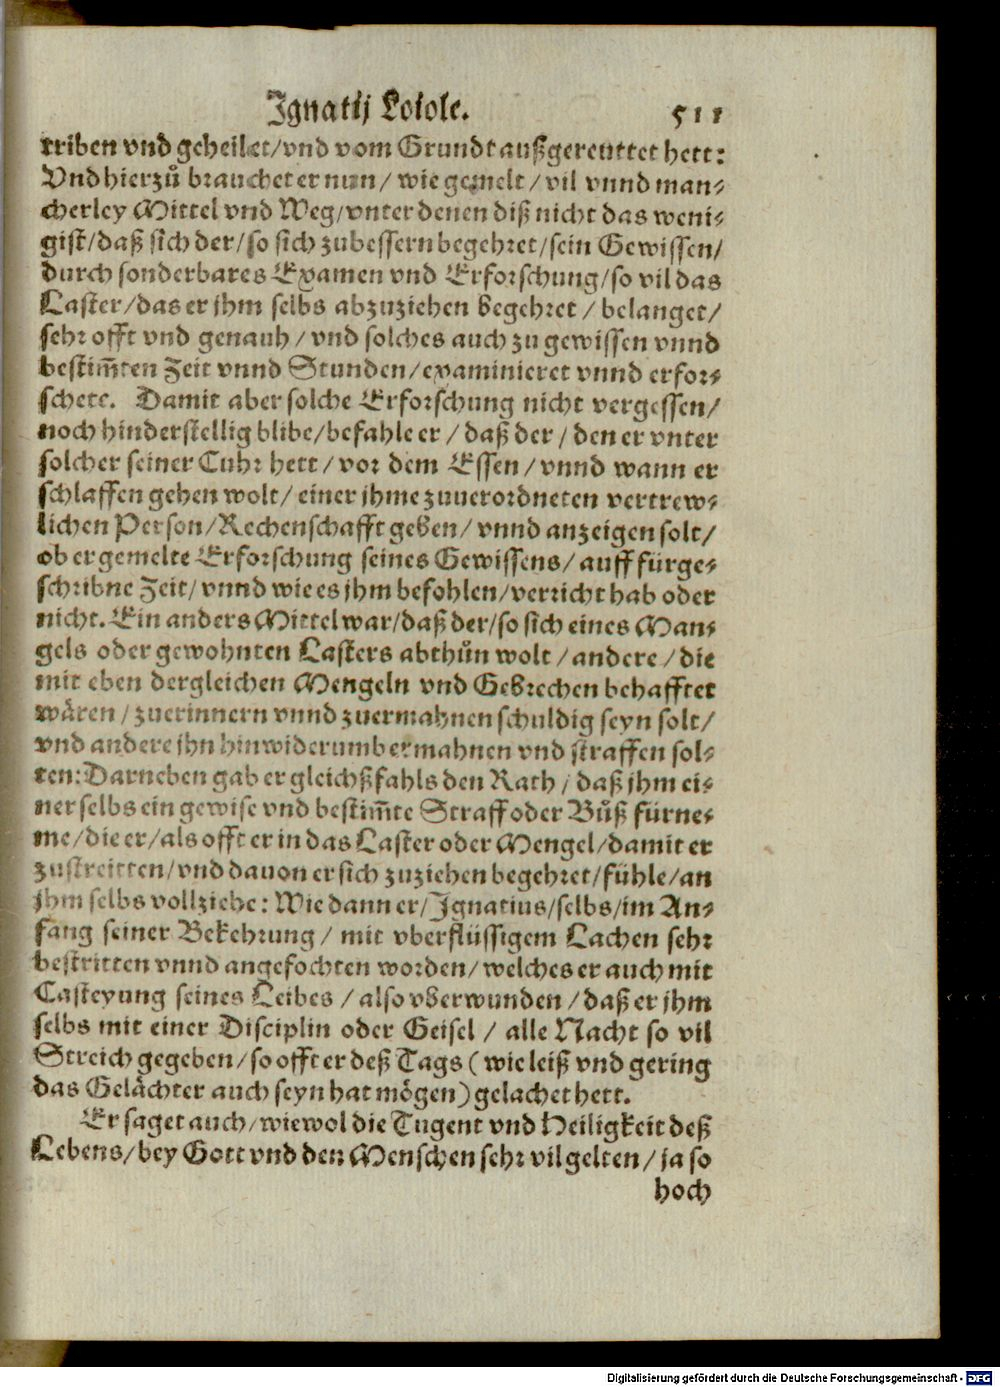 Ignatij Loiole. 511
triben vnd geheilet/vnd vom Grundt außgereuttet hett:
Vnd hierzů brauchet er nun/ wie gemelt/ vil vnnd man⸗
cherley Mittel vnd Weg/vnter denen diß nicht das weni⸗
gist/daß sich der/so sich zubessern begehret/sein Gewissen/
durch sonderbares Examen vnd Erforschung/so vil das
Laster/das er jhm selbs abzuziehen begehret/ belanget/
sehr offt vnd genauh/ vnd solches auch zu gewissen vnnd
bestim̃ten Zeit vnnd Stunden/examinieret vnnd erfor⸗
schete. Damit aber solche Erforschung nicht vergessen/
noch hinderstellig blibe/befahle er/ daß der/ den er vnter
solcher seiner Cuhr hett/ vor dem Essen/ vnnd wann er
schlaffen gehen wolt/ einer jhme zuuerordneten vertrew⸗
lichen Person/Rechenschafft geben/ vnnd anzeigen solt/
ob er gemelte Erforschung seines Gewissens/ auff fürge⸗
schribne Zeit/ vnnd wie es jhm befohlen/verricht hab oder
nicht. Ein anders Mittel war/daß der/so sich eines Man⸗
gels oder gewohnten Lasters abthůn wolt/andere/die
mit eben dergleichen Mengeln vnd Gebrechen behafftet
wåren/zuerinnern vnnd zuermahnen schuldig seyn solt/
vnd andere jhn hinwiderumb ermahnen vnd straffen sol⸗
ten: Darneben gab er gleichßfahls den Rath/ daß jhm ei⸗
ner selbs ein gewise vnd bestim̃te Straff oder Bůß fürne⸗
me/die er/als offt er in das Laster oder Mengel/damit er
zustreitten/vnd dauon er sich zuziehen begehret/fühle/an
jhm selbs vollziehe: Wie dann er/Ignatius/selbs/im An⸗
fang seiner Bekehrung/ mit vberflüssigem Lachen sehr
bestritten vnnd angefochten worden/welches er auch mit
Casteyung seines Leibes/also vberwunden/daß er jhm
selbs mit einer Disciplin oder Geisel/ alle Nacht so vil
Streich gegeben/so offt er deß Tags (wie leiß vnd gering
das Gelåchter auch seyn hat mögen) gelachet hett.
Er saget auch/wiewol die Tugent vnd Heiligkeit deß
Lebens/bey Gott vnd den Menschen sehr vil gelten/ja so
hoch
Digitalisierung gefördert durch die Deutsche Forschungsgemeinschaft - DFG